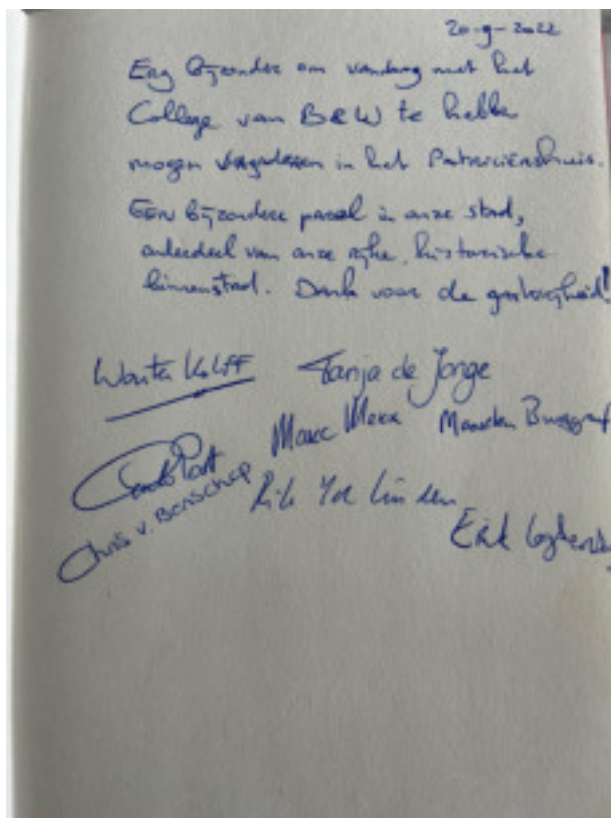 20-9-2022
Erg bijzonder om vandaag met het
College van B&W te hebben
mogen vergaderen in het Patriciërshuis.
EEN bijzondere parel in onze stad,
onderdeel van onze rijke, historische
binnenstad. Dank voor de gastvrijheid!
Wouter Kolff Tanja de Jonge
Marc Merx Maarten Burggraaf
Chris v. Benschop
Rik van der Linden
Erik